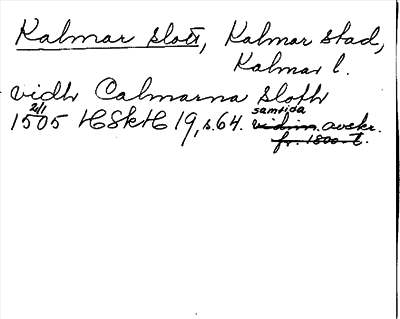 Kalmar slott, Kalmar stad,
Kalmar l.
vidh Calmarna Sloth
1505 2/1 HSkH 19, s. 64. samtida vidim. avskr.
fr. 1800-t.